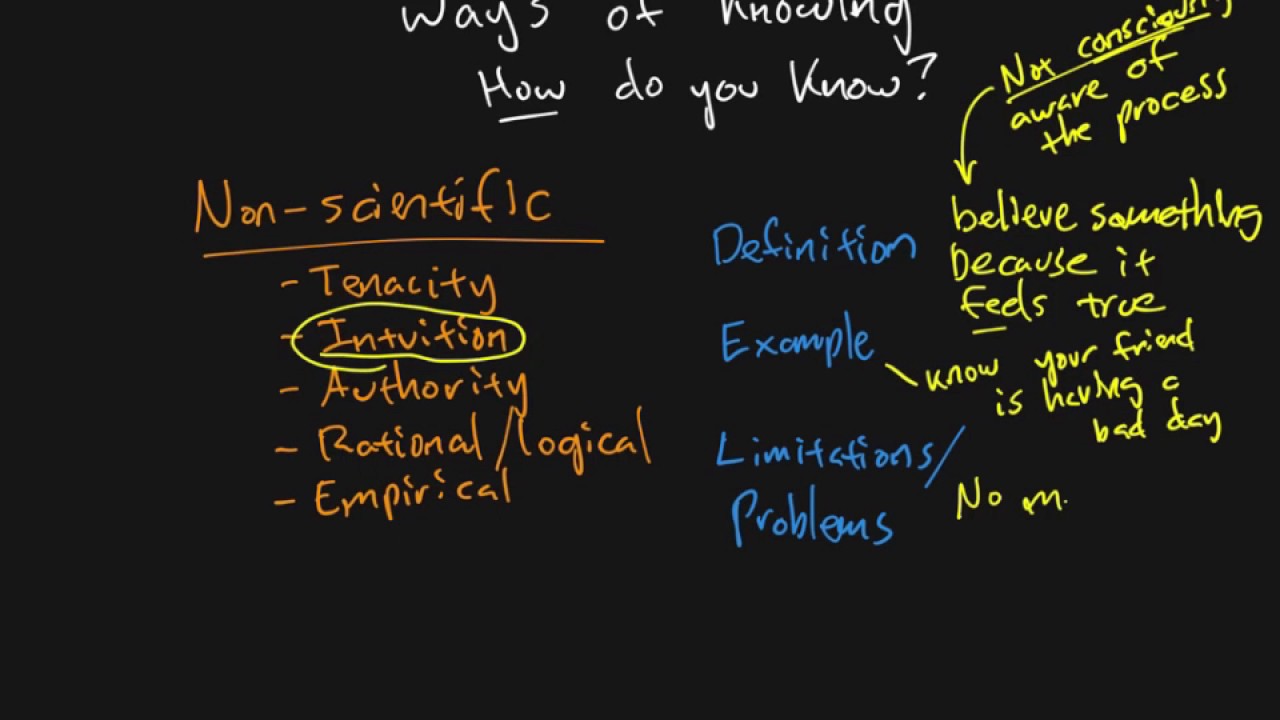 Ways of Knowing
How do you know?
Non-scientific
- Tenacity
- Intuition
- Authority
- Rational/logical
- Empirical
Definition
Example
Limitations/
Problems
Not consciously
aware of
the process
believe something
because it
feels true
know your friend
is having a
bad day
No m